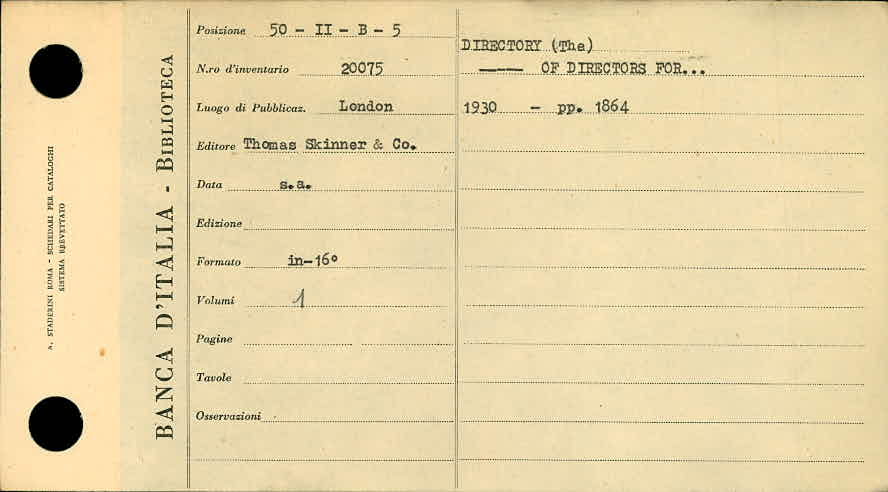 A. STADERINI ROMA - SCHEDARI PER CATALOGHI
SISTEMA BREVETTATO
BANCA D'ITALIA - BIBLIOTECA
Posizione 50 - II - B - 5
N.ro d'inventario 20075
Luogo di Pubblicaz. London
Editore Thomas Skinner & Co.
Data s.a.
Edizione
Formato in-16°
Volumi 1
Pagine
Tavole
Osservazioni
DIRECTORY (The)
—— OF DIRECTORS FOR...
1930 - pp. 1864